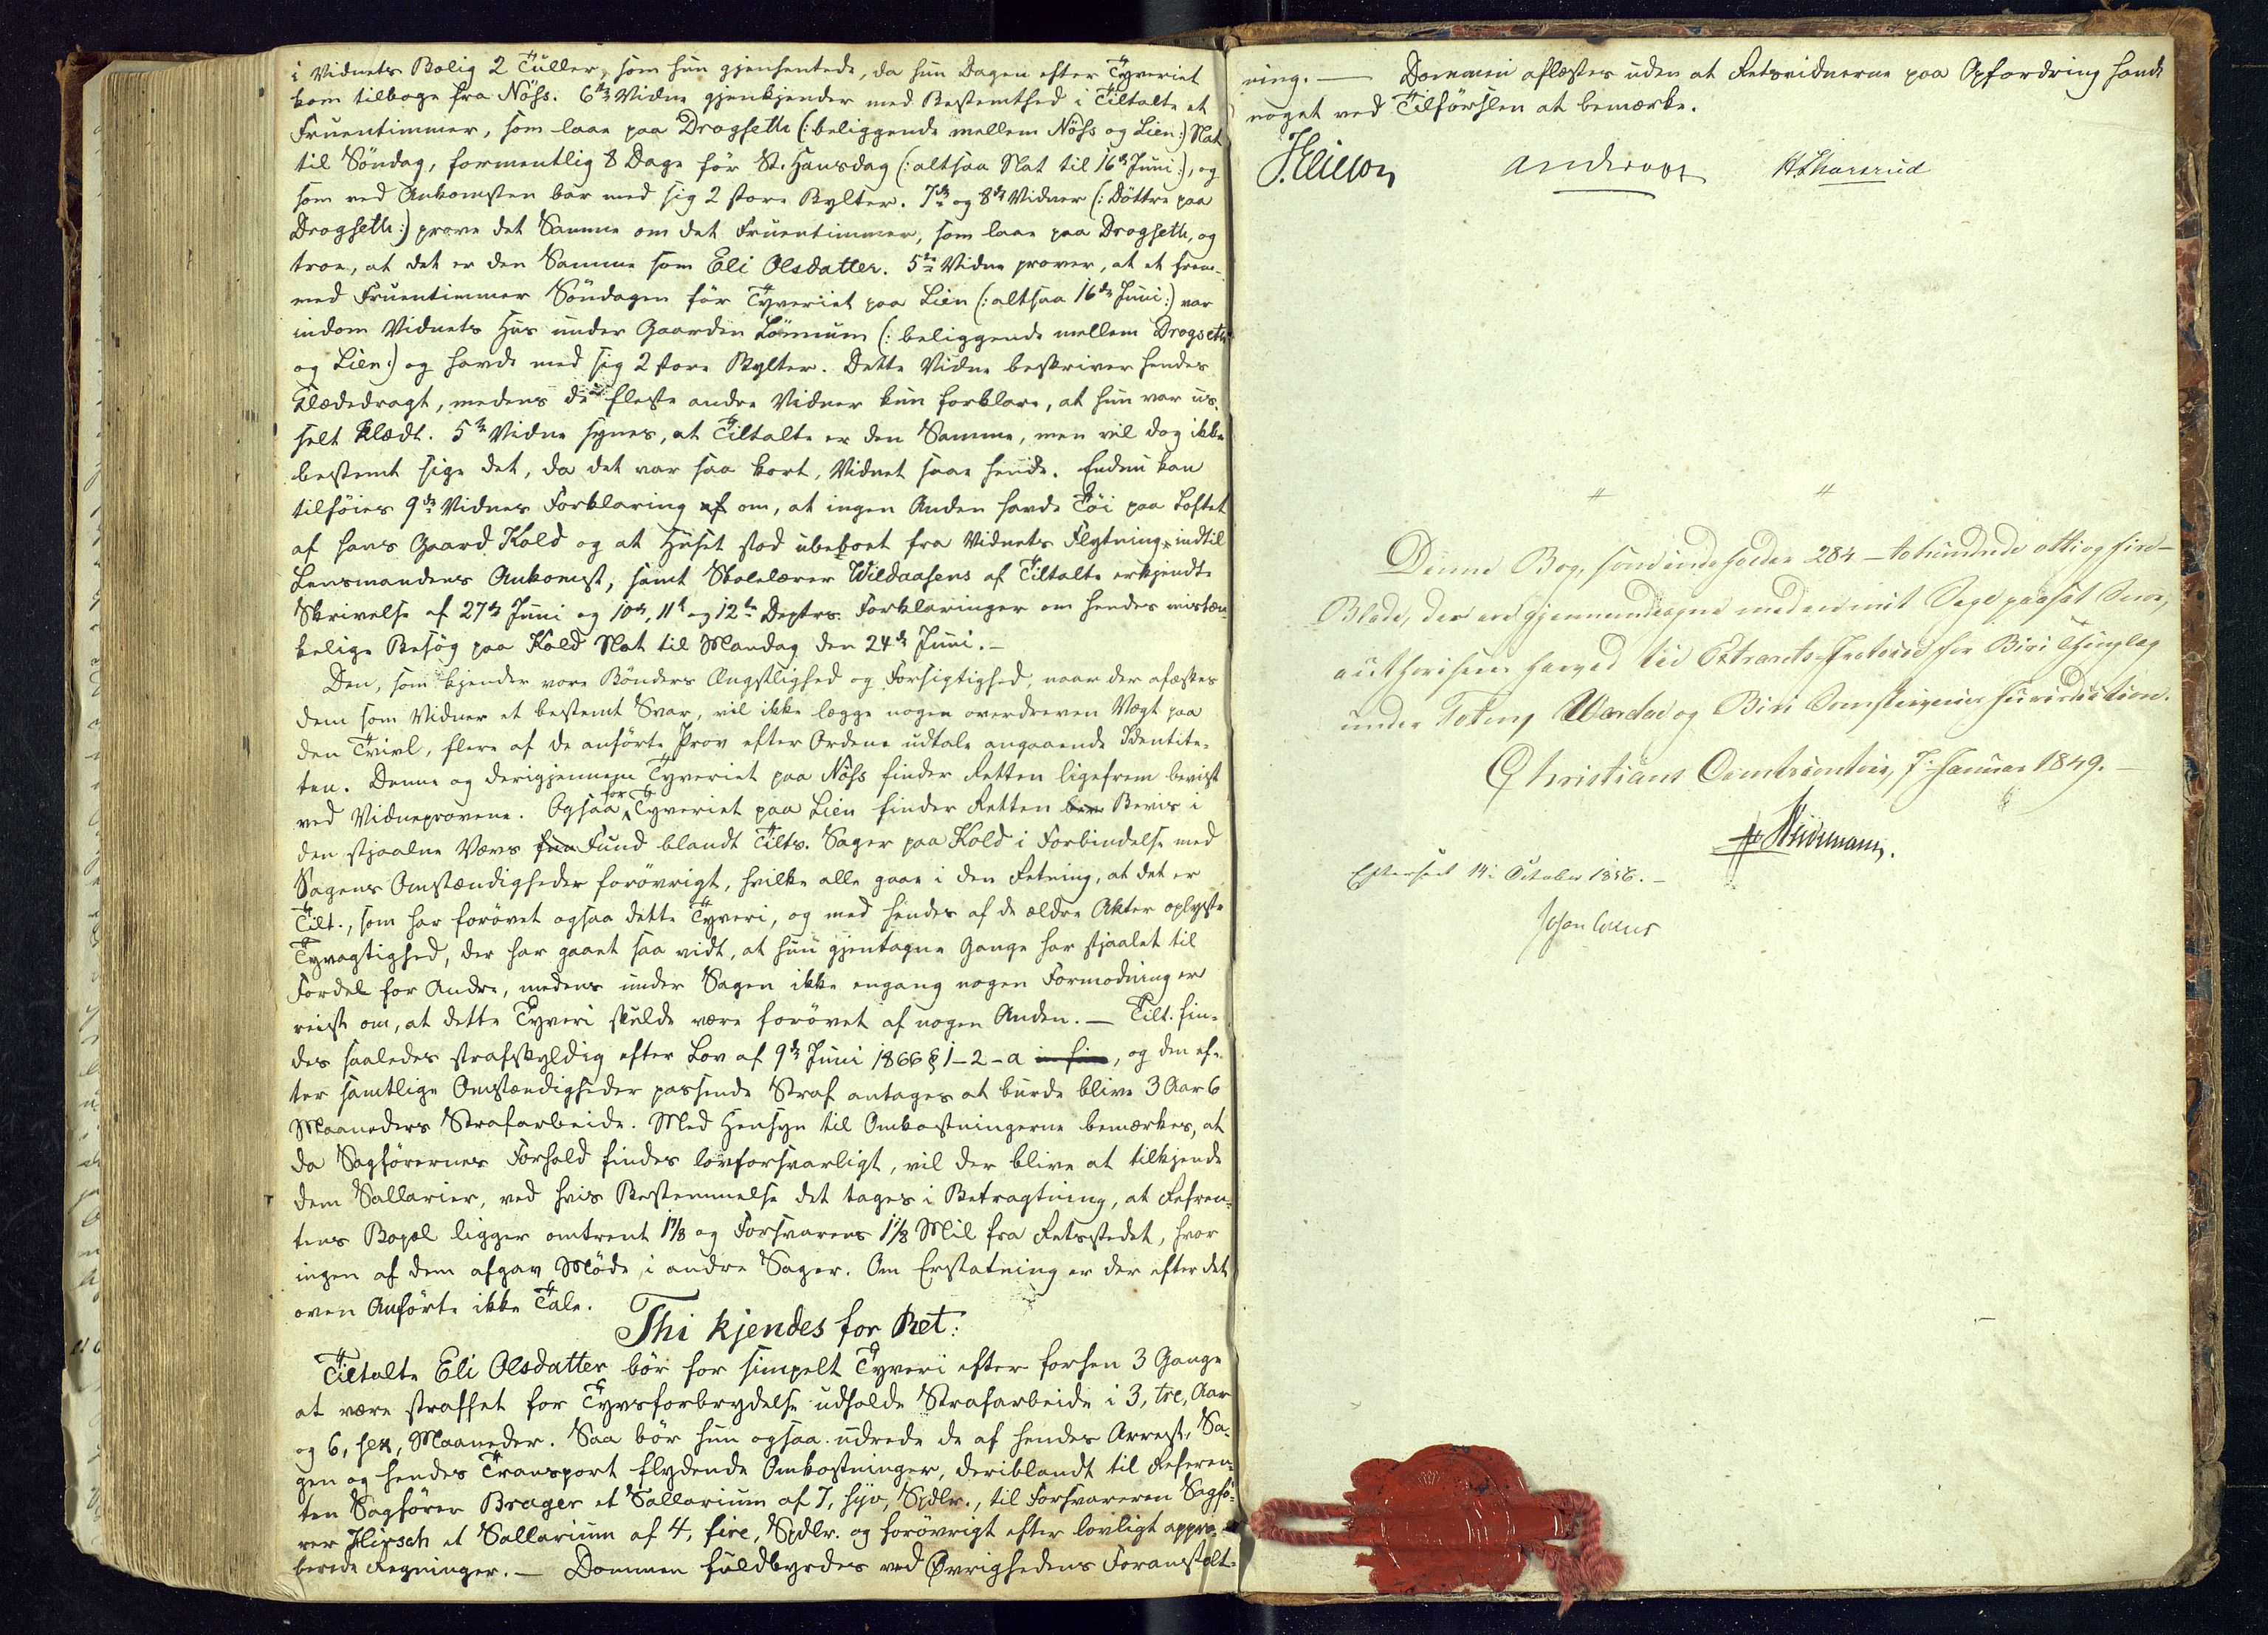 i Vidnets Bolig 2 Tuller, som hun gjenhentede, da hun Dagen efter Tyveriet
kom tilbage fra Nöss. 6te Vidne gjenkjender med Bestemthed i Tiltalte et
Fruentimmer, som laae paa Dragseth (: beliggende mellem Nöss og Lien :) Nat
til Söndag, formentlig 8 Dage för St. Hansdag (: altsaa Nat til 16de Juni :), og
som ved Ankomsten bar med sig 2 store Bylter. 7de og 8de Vidner (: Döttre paa
Dragseth :) prove det Samme om det Fruentimmer, som laae paa Dragseth, og
troe, at det er den Samme som Eli Olsdatter. 5te Vidne prover, at et frem-
med Fruentimmer Söndagen för Tyveriet paa Lien (: altsaa 16de Juni :) var
indom Vidnets Hus under Gaarden Lönnum (: beliggende mellem Dragseth
og Lien :) og havde med sig 2 store Bylter. Dette Vidne beskriver hendes
Klædedragt, medens de fleste andre Vidner kun forklare, at hun var us-
selt klædt. 5te Vidne synes, at Tiltalte er den Samme, men vil dog ikke
bestemt sige det, da det var saa kort, Vidnet saae hende. Endnu kan
tilföies 9de Vidnes Forklaring af om, at ingen Anden havde Töi paa Loftet
af hans Gaard Kold og at Huset stod ubeboet fra Vidnets Flytning indtil
Lensmandens Ankomst, samt Skolelærer Wildaasens af Tiltalte erkjendte
Skrivelse af 27de Juni og 10de, 11te og 12te Deptrs. Forklaringer om hendes mistæn-
kelige Besög paa Kold Nat til Mandag den 24de Juni. -
Den, som kjender vore Bönders Ængstlighed og Forsigtighed, naar der afæskes
dem som Vidner et bestemt Svar, vil ikke lægge nogen overdreven Vægt paa
den Tvivl, flere af de anförte Prov efter Ordene udtale angaaende Identite-
ten. Denne og derigjennem Tyveriet paa Nöss finder Retten ligefrem bevist
ved Vidneprovene. Ogsaa for Tyveriet paa Lien finder Retten bev Bevis i
den stjaalne Vævs Fund blandt Tilts. Sager paa Kold i Forbindelse med
Sagens Omstændigheder forövrigt, hvilke alle gaae i den Retning, at det er
Tilt., som har forövet ogsaa dette Tyveri, og med hendes af de ældre Akter oplyste
Tyvagtighed, der har gaaet saa vidt, at hun gjentagne Gange har stjaalet til
Fordel for Andre, medens under Sagen ikke engang nogen Formodning er
reist om, at dette Tyveri skulde være forövet af nogen Anden. — Tilt. fin-
des saaledes strafskyldig efter Lov af 9de Juni 1866 § 1-2-a in fine, og den ef-
ter samtlige Omstændigheder passende Straf antages at burde blive 3 Aar 6
Maaneders Strafarbeide. Med Hensyn til Omkostningerne bemærkes, at
da Sagförernes Forhold findes lovforsvarligt, vil der blive at tilkjende
dem Sallarier, ved hvis Bestemmelse det tages i Betragtning, at Referen-
tens Bopæl ligger omtrent 1 7/8 og Forsvarens 1 1/8 Mil fra Retsstedet, hvor
ingen af dem afgav Möde i andre Sager. Om Erstatning er der efter det
oven Anförte ikke Tale.
Thi kjendes for Ret:
Tiltalte Eli Olsdatter bör for simpelt Tyveri efter forhen 3 Gange
at være straffet for Tyvsforbrydelse udholde Strafarbeide i 3, tre, Aar
og 6, sex, Maaneder. Saa bör hun ogsaa udrede de af hendes Arrest, Sa-
gen og hendes Transport flydende Omkostninger, deriblandt til Referen-
ten Sagförer Brager et Sallarium af 7, syv, Spdlr., til Forsvareren Sagfö-
rer Hirsch et Sallarium af 4, fire, Spdlr. og forövrigt efter lovligt appro-
berede Regninger. — Dommen fuldbyrdes ved Øvrighedens Foranstalt-
ning. — Dommen aflæstes uden at Retsvidnerne paa Opfordring havde
noget ved Tilförslen at bemærke.
Denne Bog, som indeholder 284 - tohundrede otti og fire -
Blade, der ere gjennemdragne med en mit Segl paasat Snor,
authoriseres herved til Extraretsprotocol for Biri Thinglag
under Toten, Wardal og Biri Sorenskriveries Jurisdiction.
Christians Amtscontoir, 7 Januar 1849. -
Efterseet 14: October 1856. -